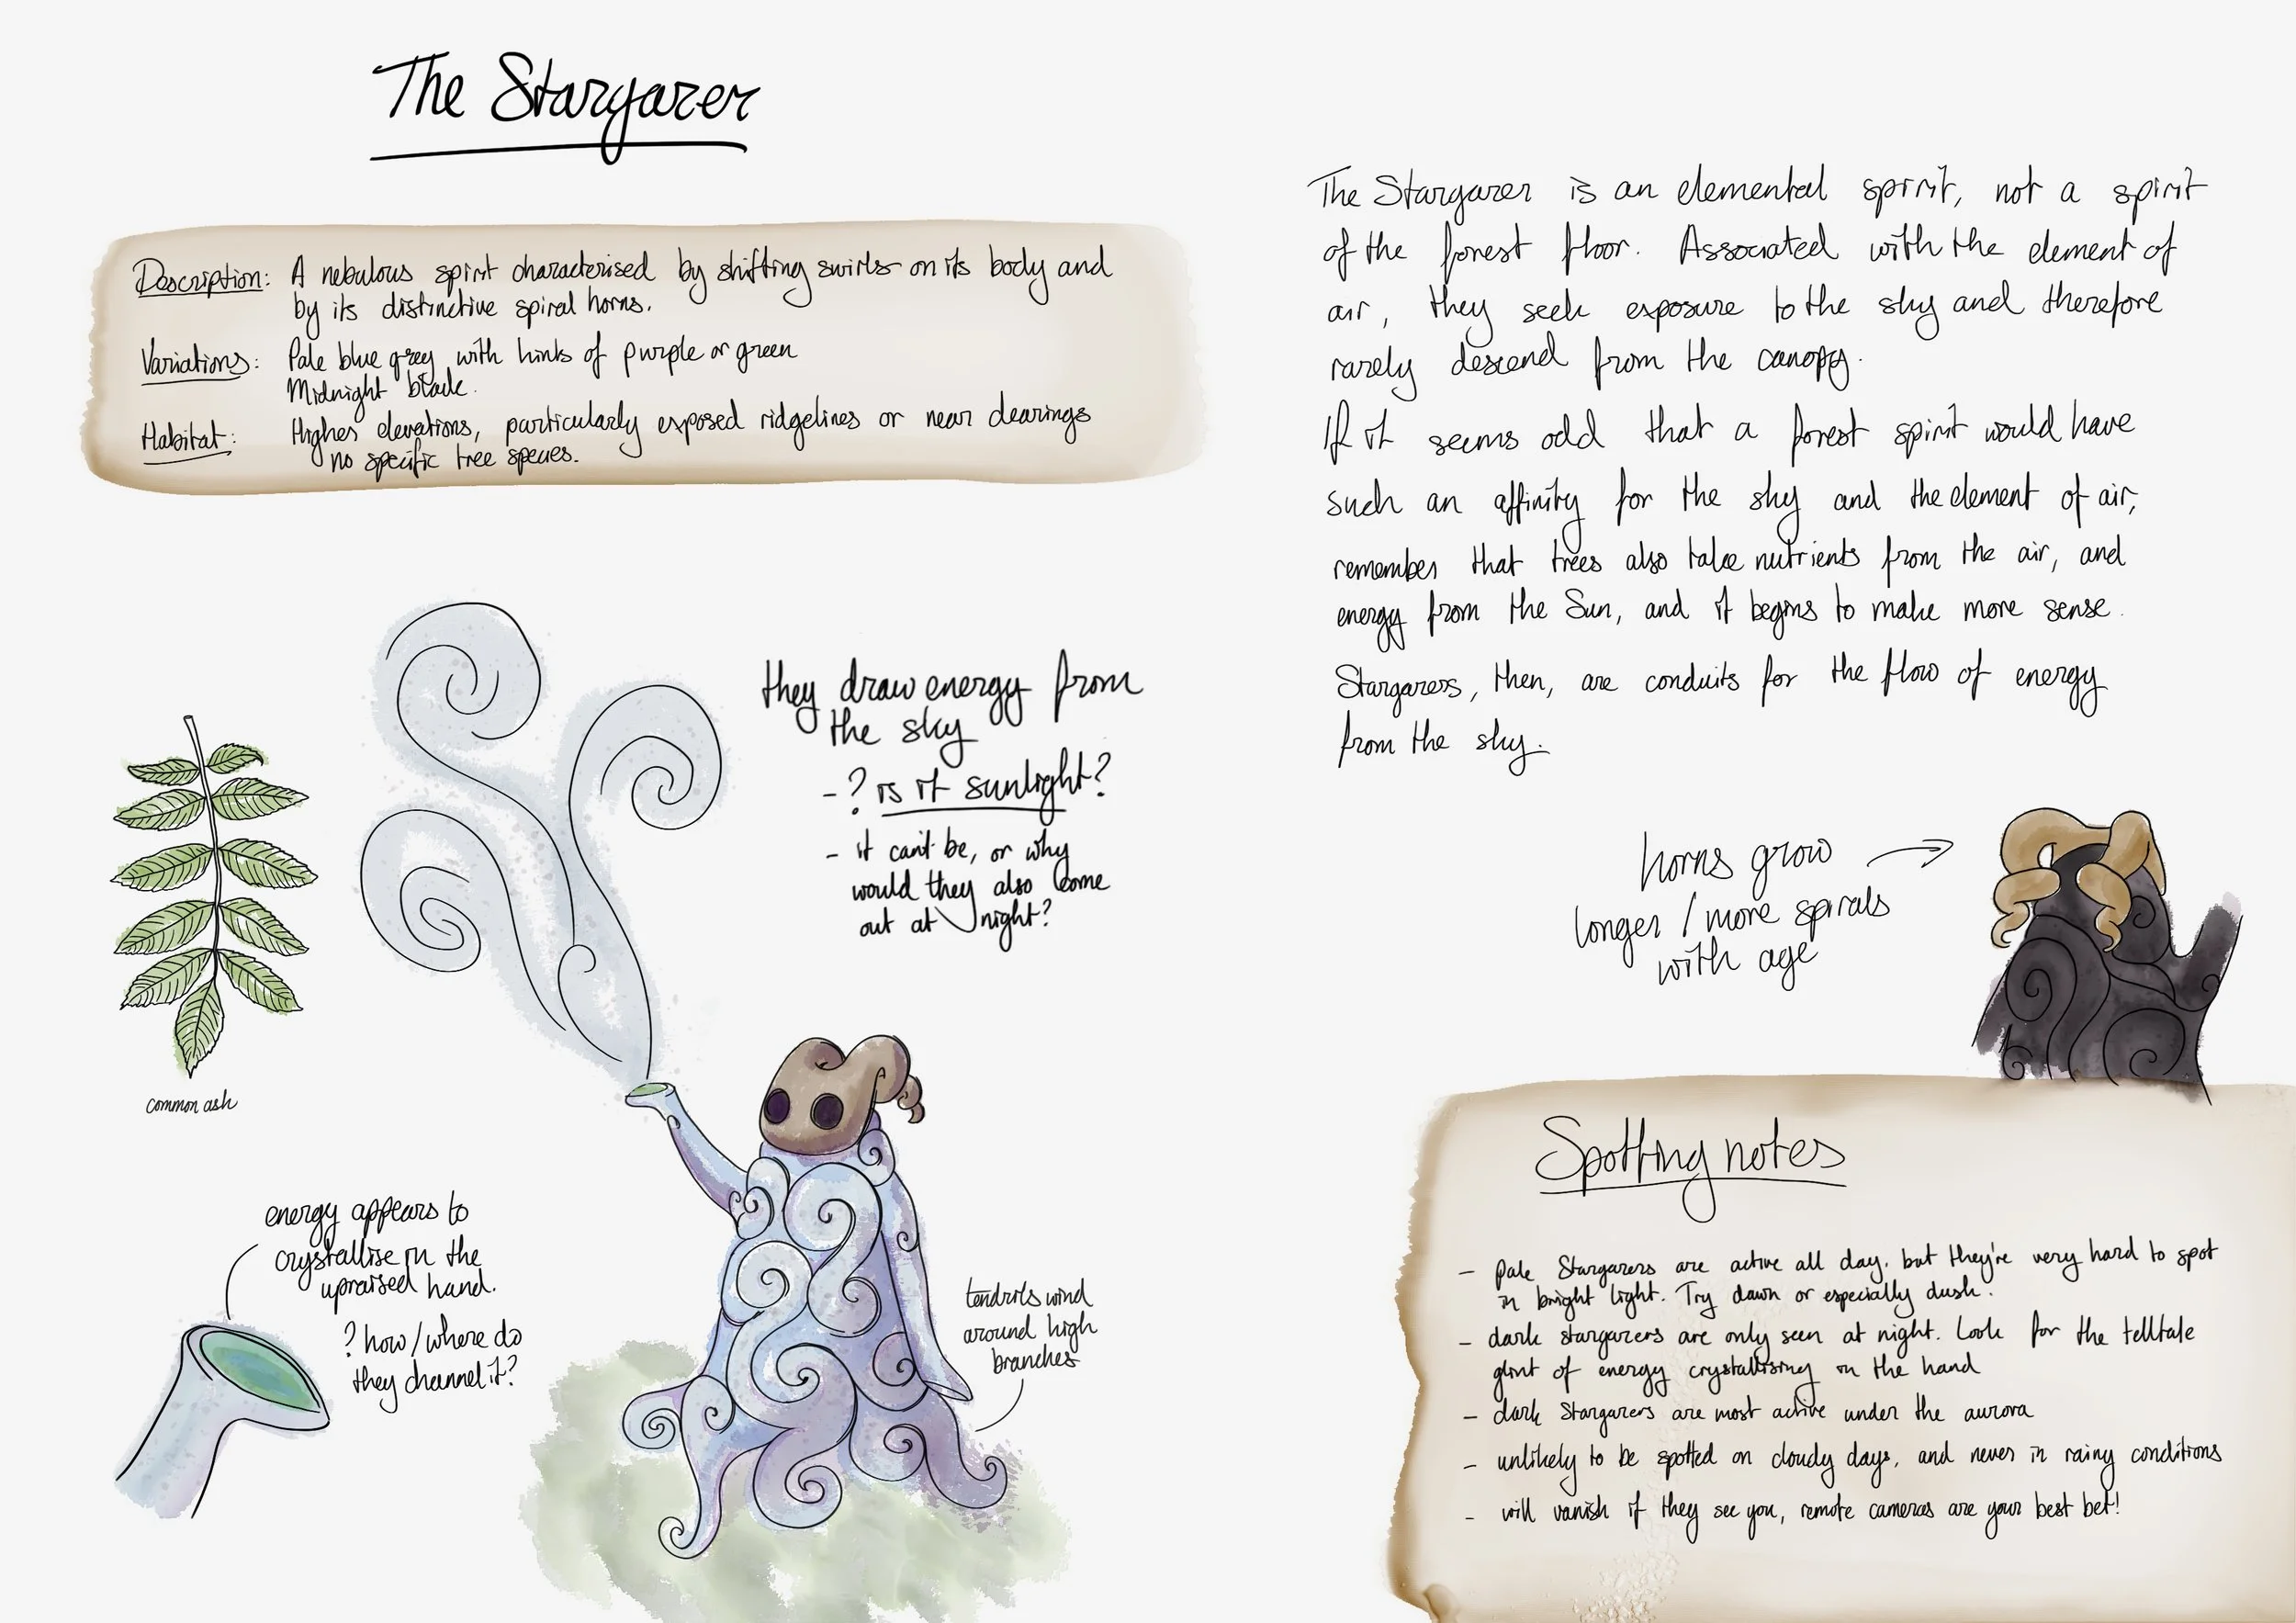 The Stargazer
Description: A nebulous spirit characterised by shifting swirls on its body and
by its distinctive spiral horns.
Variations: Pale blue grey with hints of purple or green
Midnight black.
Habitat: Higher elevations, particularly exposed ridgelines or near clearings
no specific tree species.
they draw energy from
the sky
- ? is it sunlight?
- it can't be, or why
would they also come
out at night?
common ash
energy appears to
crystallise in the
upraised hand.
? how/where do
they channel it?
tendrils wind
around high
branches
The Stargazer is an elemental spirit, not a spirit
of the forest floor. Associated with the element of
air, they seek exposure to the sky and therefore
rarely descend from the canopy.
If it seems odd that a forest spirit would have
such an affinity for the sky and the element of air,
remember that trees also take nutrients from the air, and
energy from the Sun, and it begins to make more sense.
Stargazers, then, are conduits for the flow of energy
from the sky.
horns grow
longer / more spirals
with age
Spotting notes
- pale Stargazers are active all day, but they're very hard to spot
in bright light. Try dawn or especially dusk.
- dark stargazers are only seen at night. Look for the telltale
glint of energy crystallising in the hand
- dark Stargazers are most active under the aurora
- unlikely to be spotted on cloudy days, and never in rainy conditions
- will vanish if they see you, remote cameras are your best bet!